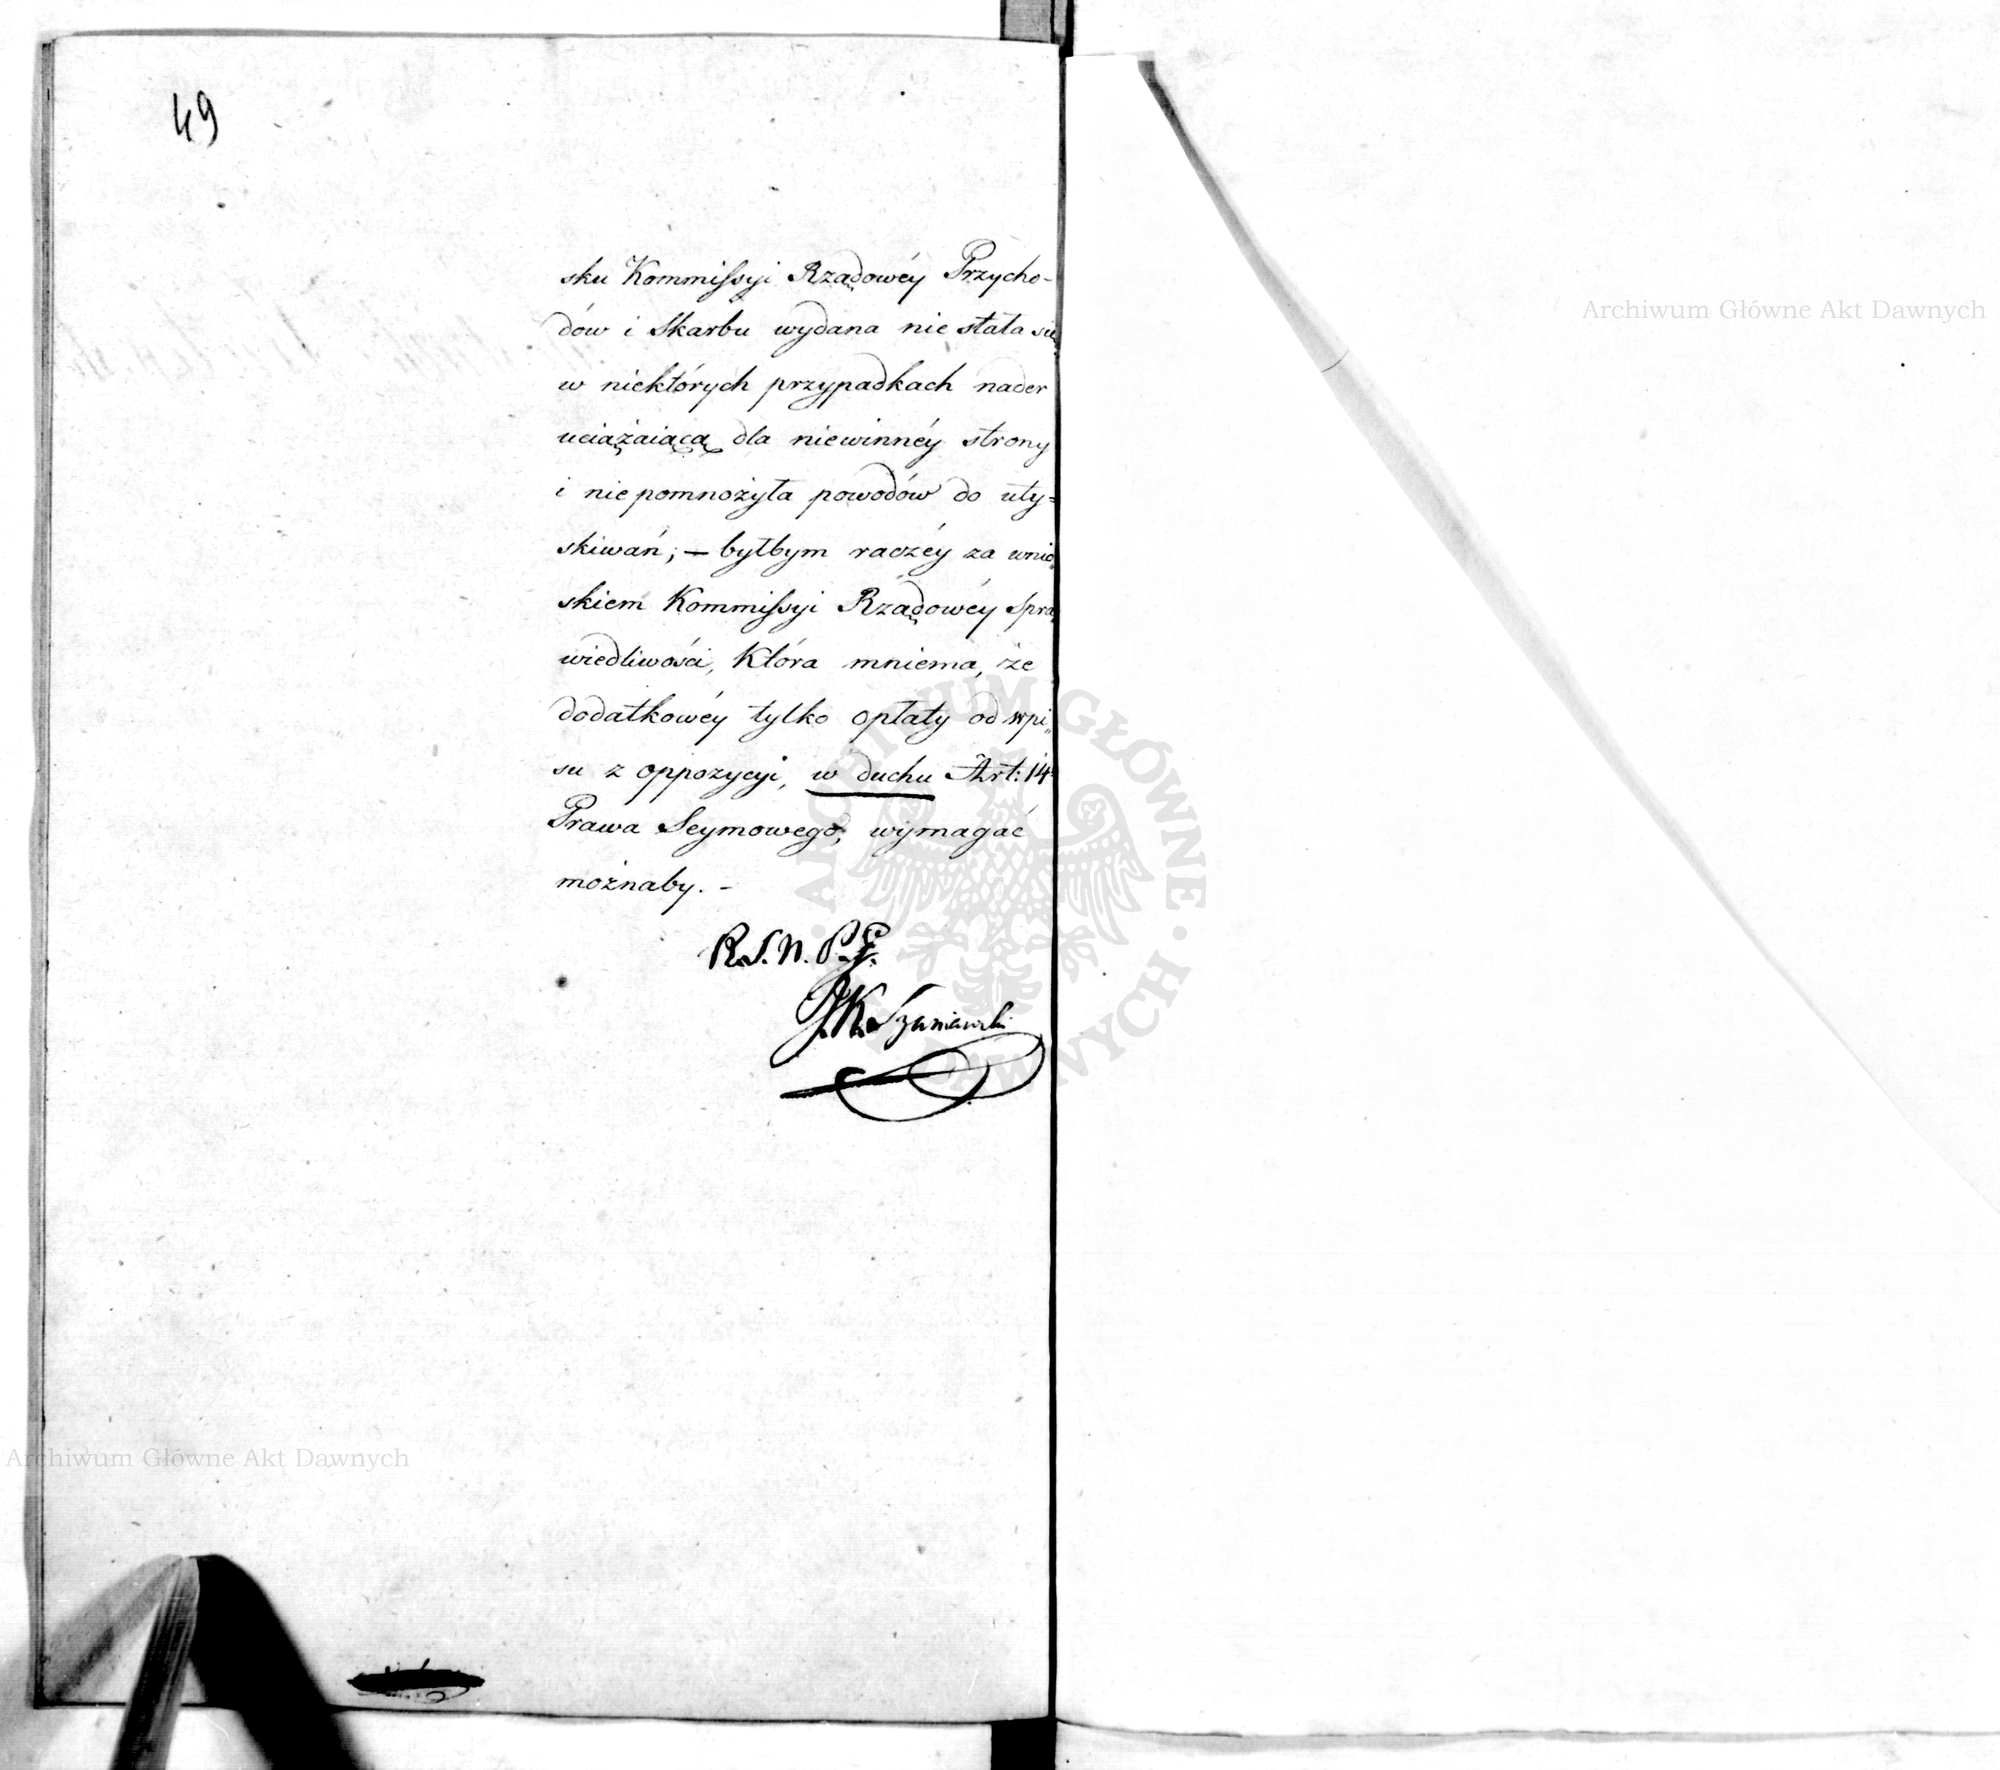 49
sku Kommissyi Rządowéy Przycho-
dów i Skarbu wydana nie stała się
w niektórych przypadkach nader
uciążaiącą dla niewinnéy strony
i nie pomnożyła powodów do uty-
skiwań; — byłbym raczéy za wnio„
skiem Kommissyi Rządowéy Spra„
wiedliwości, która mniema, że
dodatkowéy tylko opłaty od wpi„
su z oppozycyi, w duchu Art: 14
Prawa Seymowego, wymagać
możnaby. -
R.S.N. P.G.
J.K. Szaniawski
Archiwum Główne Akt Dawnych
Archiwum Główne Akt Dawnych
ARCHIWUM GŁÓWNE AKT DAWNYCH